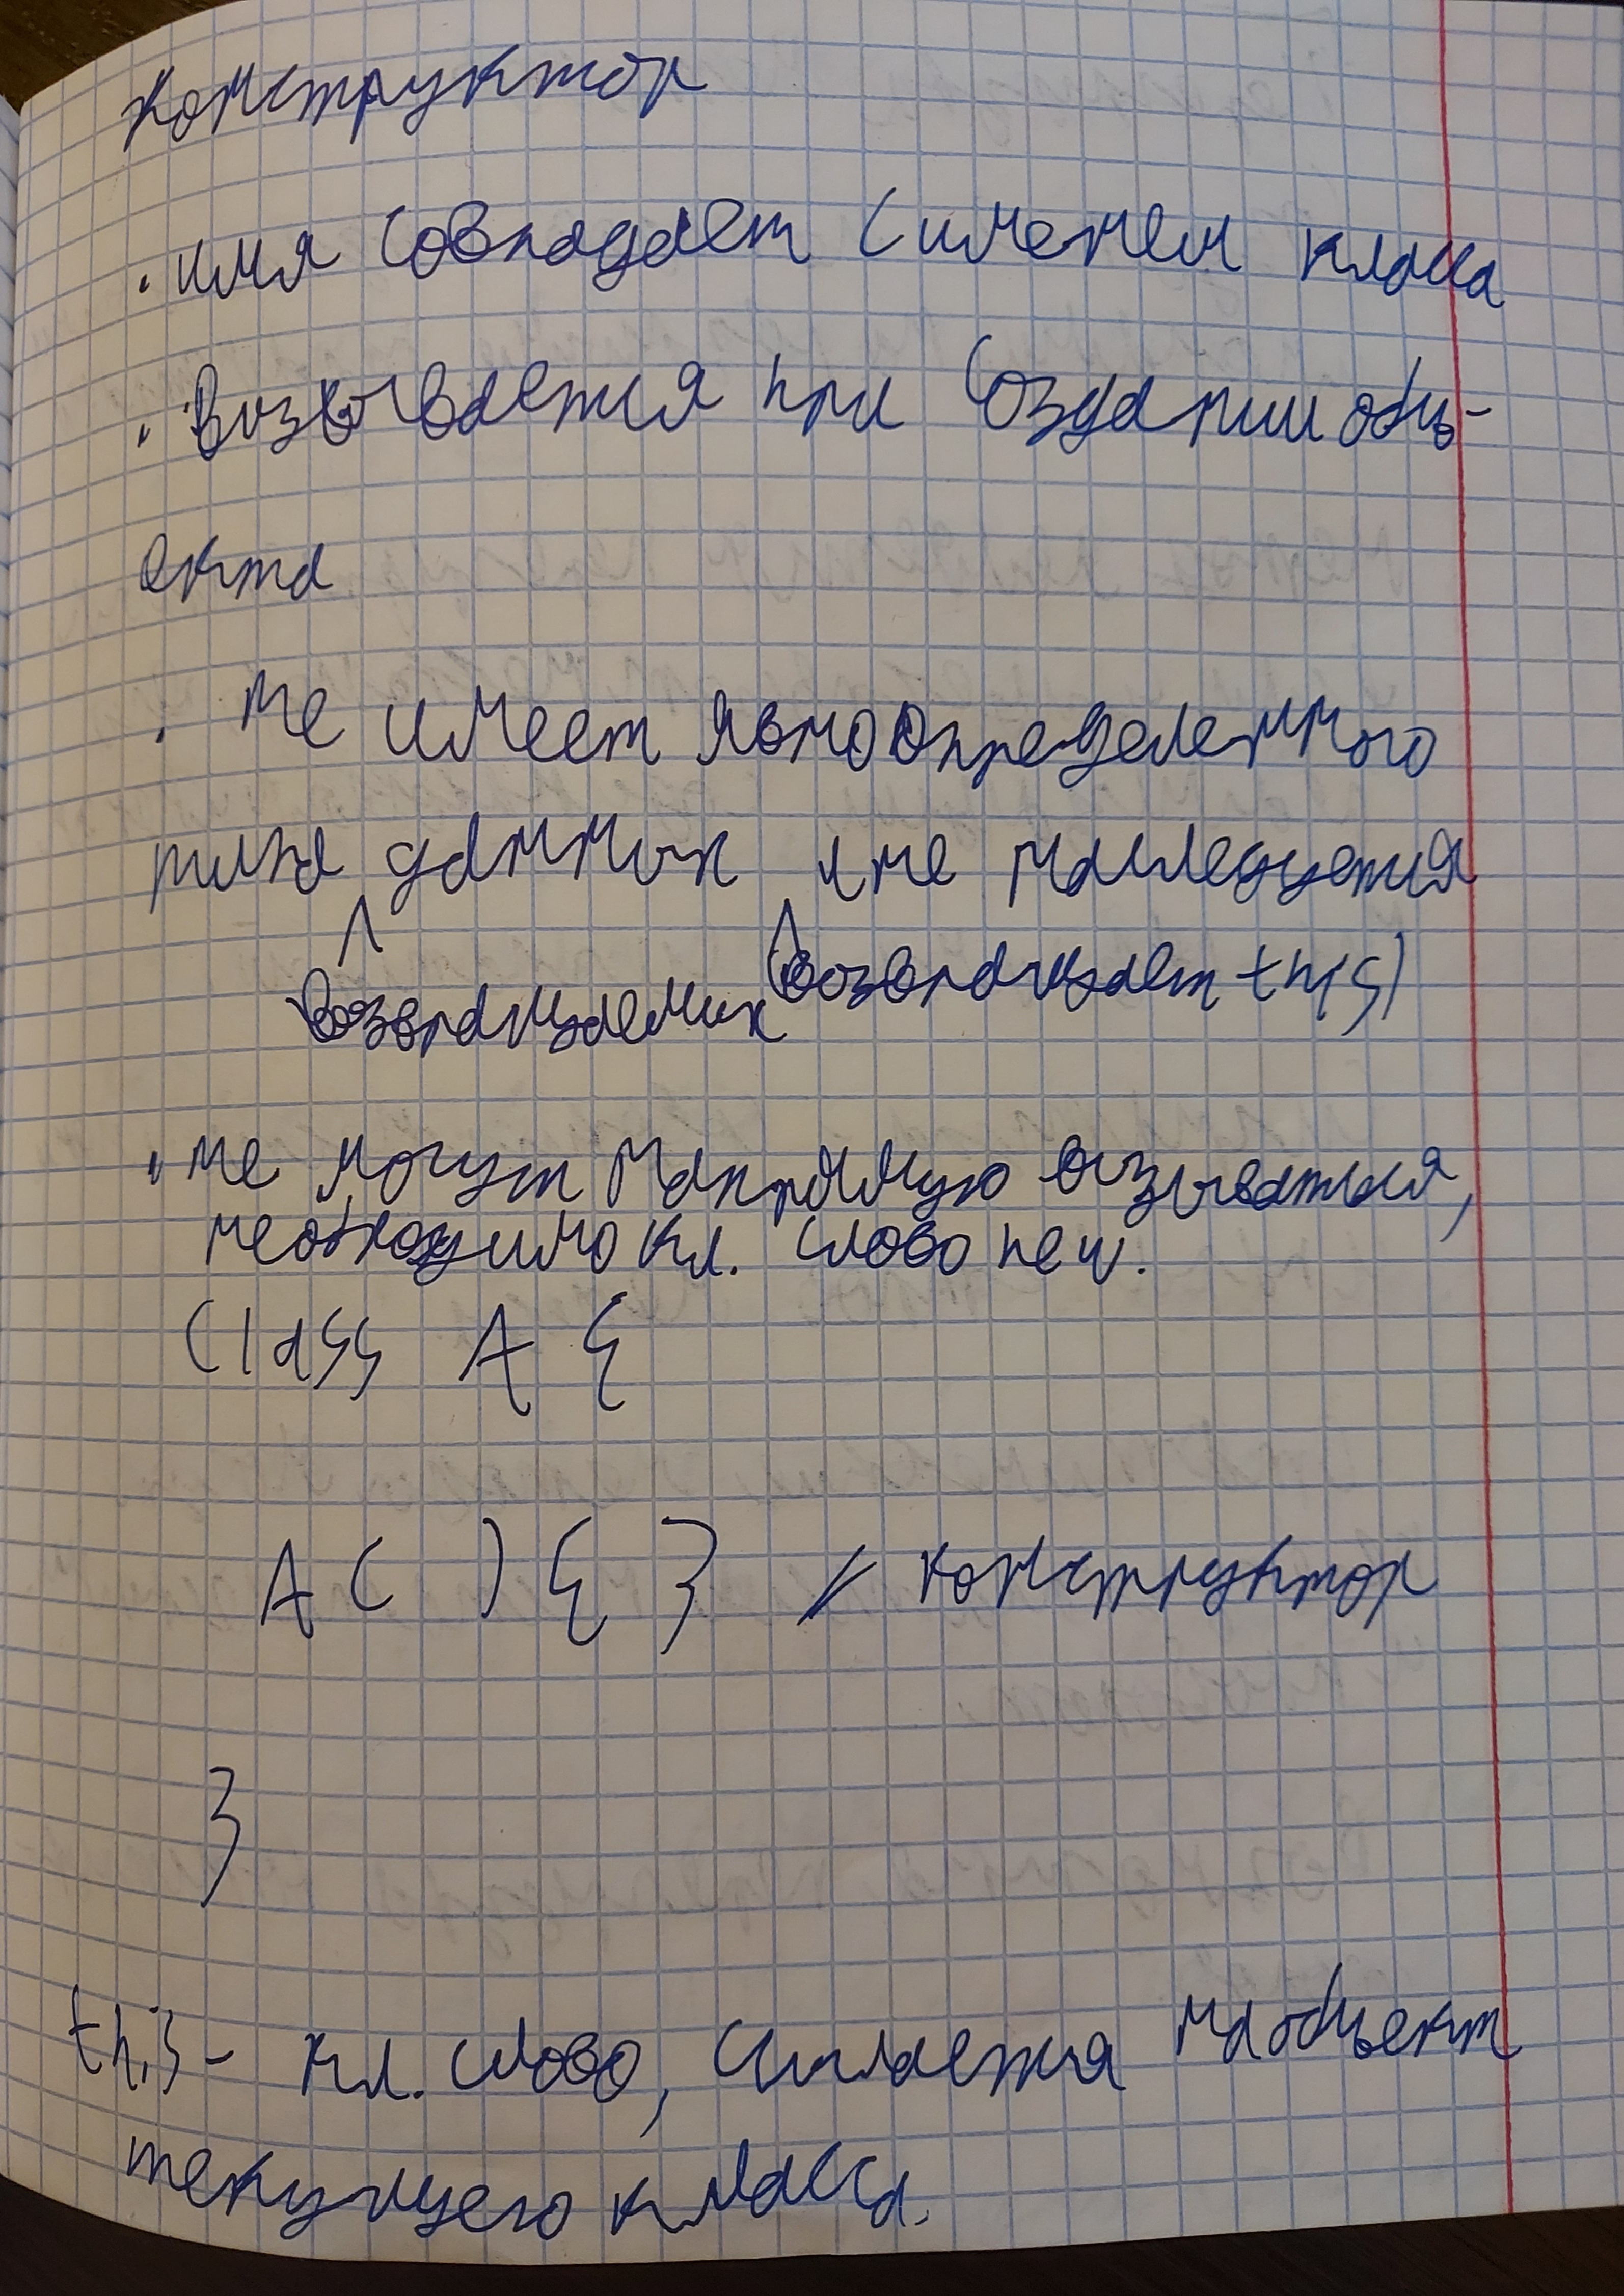 Конструктор
· имя совпадает с именем класса
· Вызывается при создании объ-
екта
· Не имеет явно определенного
типа данных и не наследуется
возвращаемых (возвращает this)
· не могут напрямую вызываться,
необходимо кл. слово new.
Class A {
A ( ) { } // конструктор
}
this - кл. слово, ссылается на объект
текущего класса.